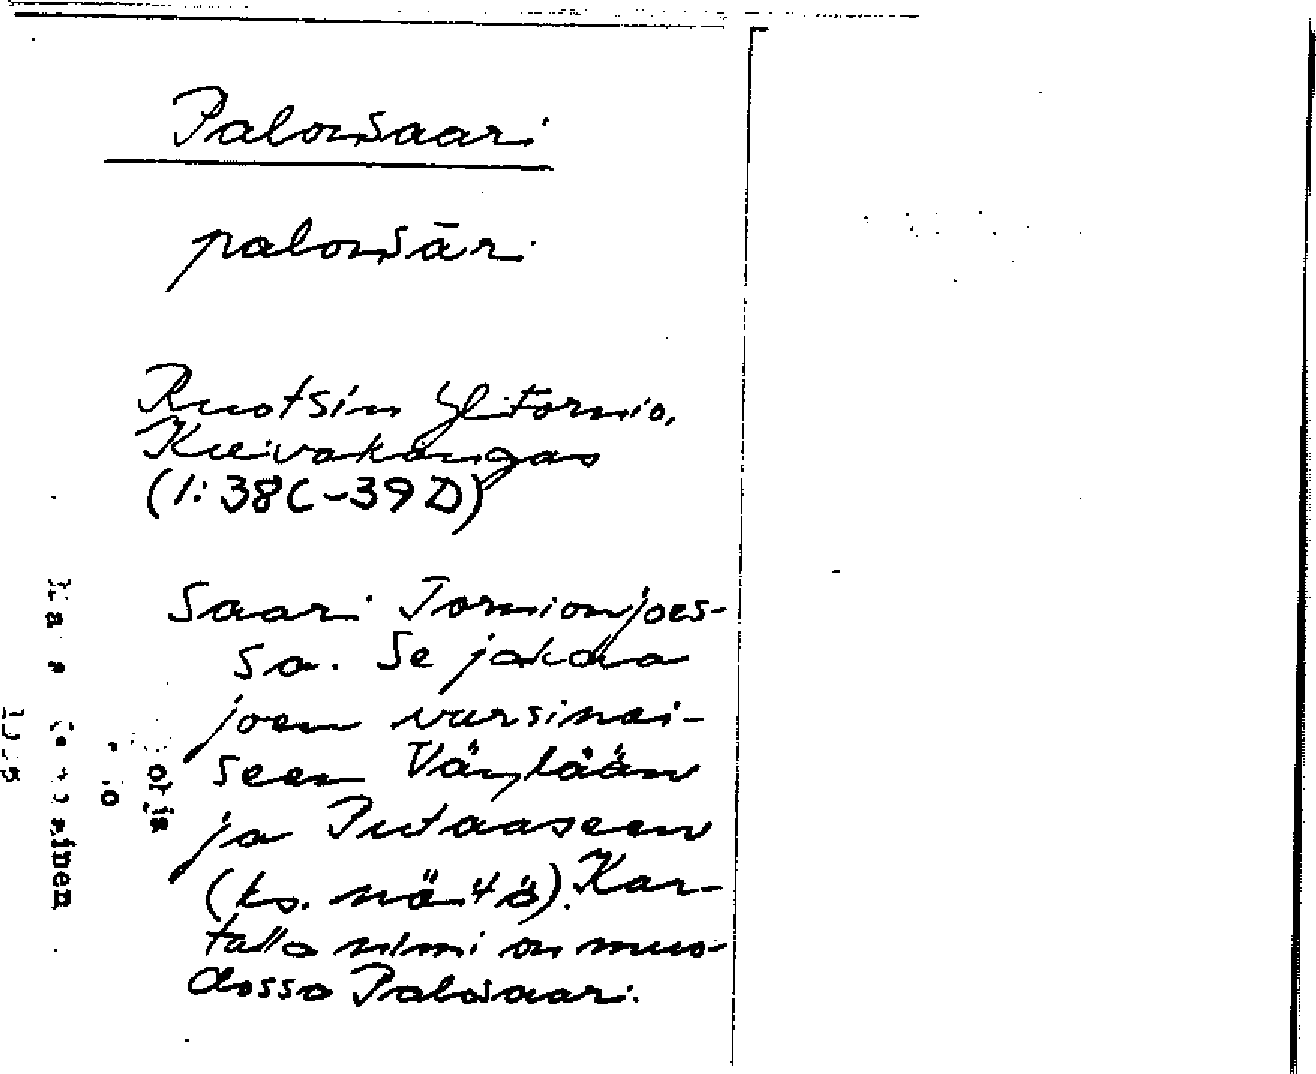 Palonsaari
palonsāri
Ruotsin Ylitornio,
Kuivakangas
(1:38C-39D)
Saari Tornionjoes-
sa. Se jakaa
joen varsinai-
seen Väylään
ja Putaaseen
(ks. näitä). Kar-
talla nimi on muo-
dossa Palosaari.